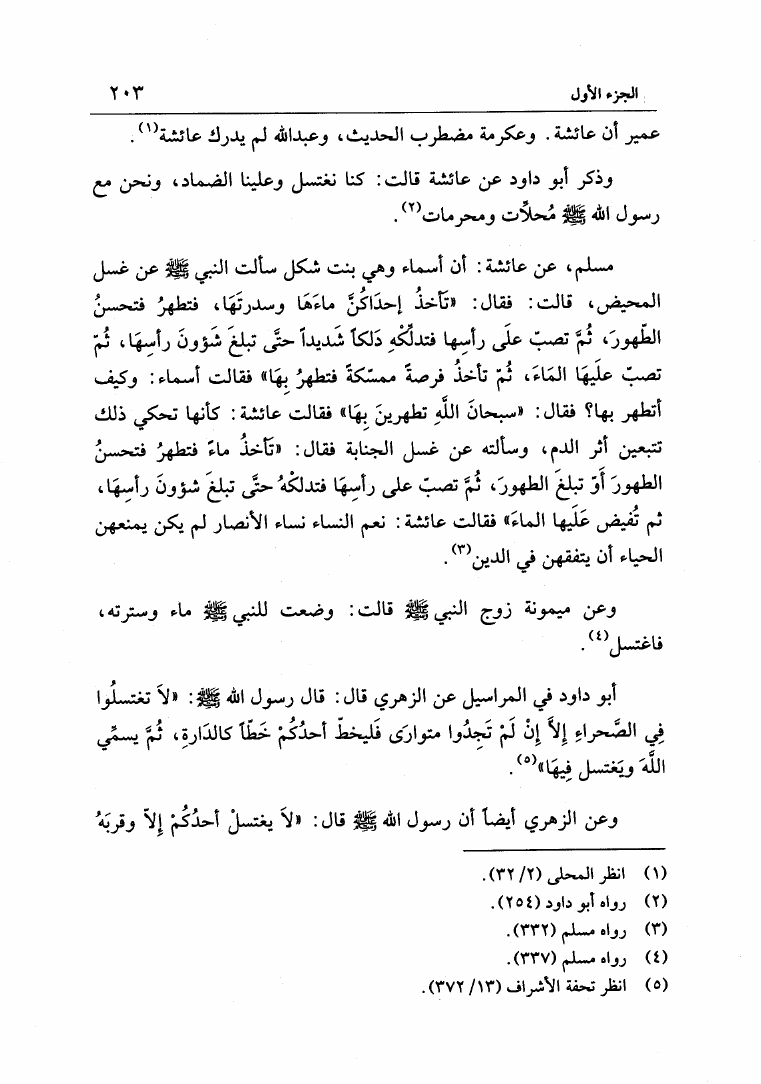 الجزء الأول ٢٠٣
عمير أن عائشة. وعكرمة مضطرب الحديث، وعبدالله لم يدرك عائشة(١).
وذكر أبو داود عن عائشة قالت: كنا نغتسل وعلينا الضماد، ونحن مع
رسول الله ﷺ مُحلاَّت ومحرمات(٢).
مسلم، عن عائشة: أن أسماء وهي بنت شكل سألت النبي ﷺ عن غسل
المحيض، قالت: فقال: «تَأخذُ إحدَاكُنَّ ماءَهَا وسدرتَهَا، فتطهرُ فتحسنُ
الطّهورَ، ثُمَّ تصبّ علَى رأسِها فتدلّكْهِ دَلكاً شَديداً حتَّى تبلغَ شَؤونَ رأسِهَا، ثُمّ
تصبّ علَيهَا المَاءَ، ثُمّ تأخذُ فرصةً ممسّكةً فتطهرُ بِهَا» فقالت أسماء: وكيف
أتطهر بها؟ فقال: «سبحانَ اللَّهِ تطهرينَ بِهَا» فقالت عائشة: كأنها تحكي ذلك
تتبعين أثر الدم، وسألته عن غسل الجنابة فقال: «تَأخذُ ماءً فتطهرُ فتحسنُ
الطهورَ أَوّ تبلغَ الطهورَ، ثُمَّ تصبّ على رأسِهَا فتدلكْهُ حتَّى تبلغَ شؤونَ رأسِهَا،
ثم تُفيض عَلَيها الماءَ» فقالت عائشة: نعم النساء نساء الأنصار لم يكن يمنعهن
الحياء أن يتفقهن في الدين(٣).
وعن ميمونة زوج النبي ﷺ قالت: وضعت للنبي ﷺ ماء وسترته،
فاغتسل(٤).
أبو داود في المراسيل عن الزهري قال: قال رسول الله ﷺ: «لاَ تغتسلُوا
فِي الصَّحراءِ إلاَّ إنْ لَمْ تَجِدُوا متوارَى فَليخطّ أحدُكُمْ خَطّاً كالدَارةِ، ثُمَّ يسمِّي
اللَّهَ ويَغتسل فِيهَا»(٥).
وعن الزهري أيضاً أن رسول الله ﷺ قال: «لاَ يغتسلْ أحدُكُمْ إلاّ وقربَهُ
(١) انظر المحلى (٣٢/٢).
(٢) رواه أبو داود (٢٥٤).
(٣) رواه مسلم (٣٣٢).
(٤) رواه مسلم (٣٣٧).
(٥) انظر تحفة الأشراف (٣٧٢/١٣).